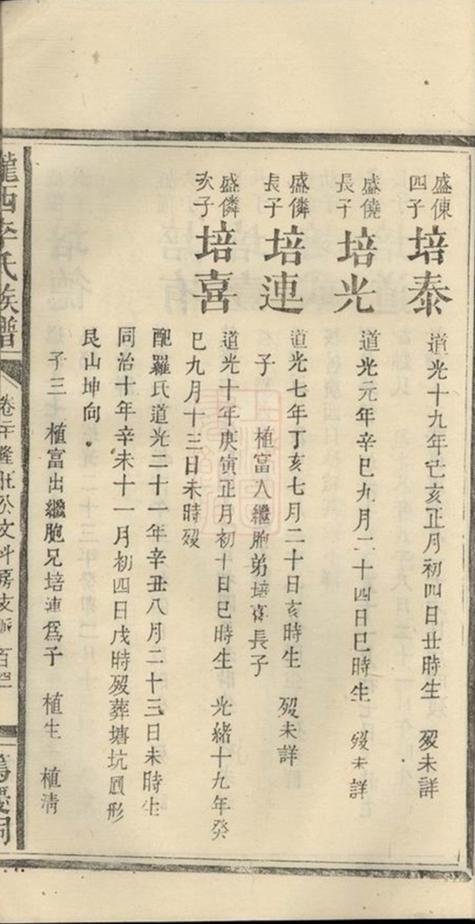 盛倲四子 培泰 道光十九年己亥正月初四日丑時生 歿未詳
盛僥長子 培光 道光元年辛巳九月二十四日巳時生 歿未詳
盛僯長子 培連 道光七年丁亥七月二十日亥時生 歿未詳
子 植富入繼胞弟培喜長子
盛僯次子 培喜 道光十年庚寅正月初十日巳時生 光緒十九年癸
巳九月十三日未時歿
配羅氏道光二十一年辛丑八月二十三日未時生
同治十年辛未十一月初四日戌時歿葬塘坑圓形
艮山坤向
子三 植富出繼胞兄培連爲子 植生 植清
隴西李氏族譜 隆旺公文科房支派